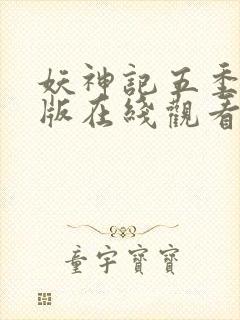 妖神記五季
版在綫觀看
童宇寶寶